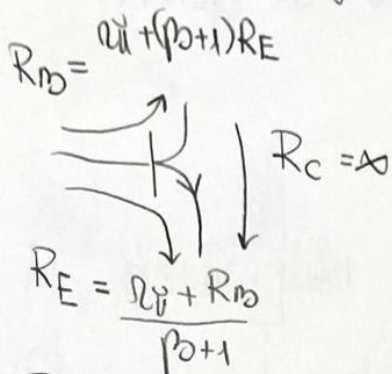 R_B = rπ + (β+1)R_E
R_C = ∞
R_E = rπ + R_B
β+1